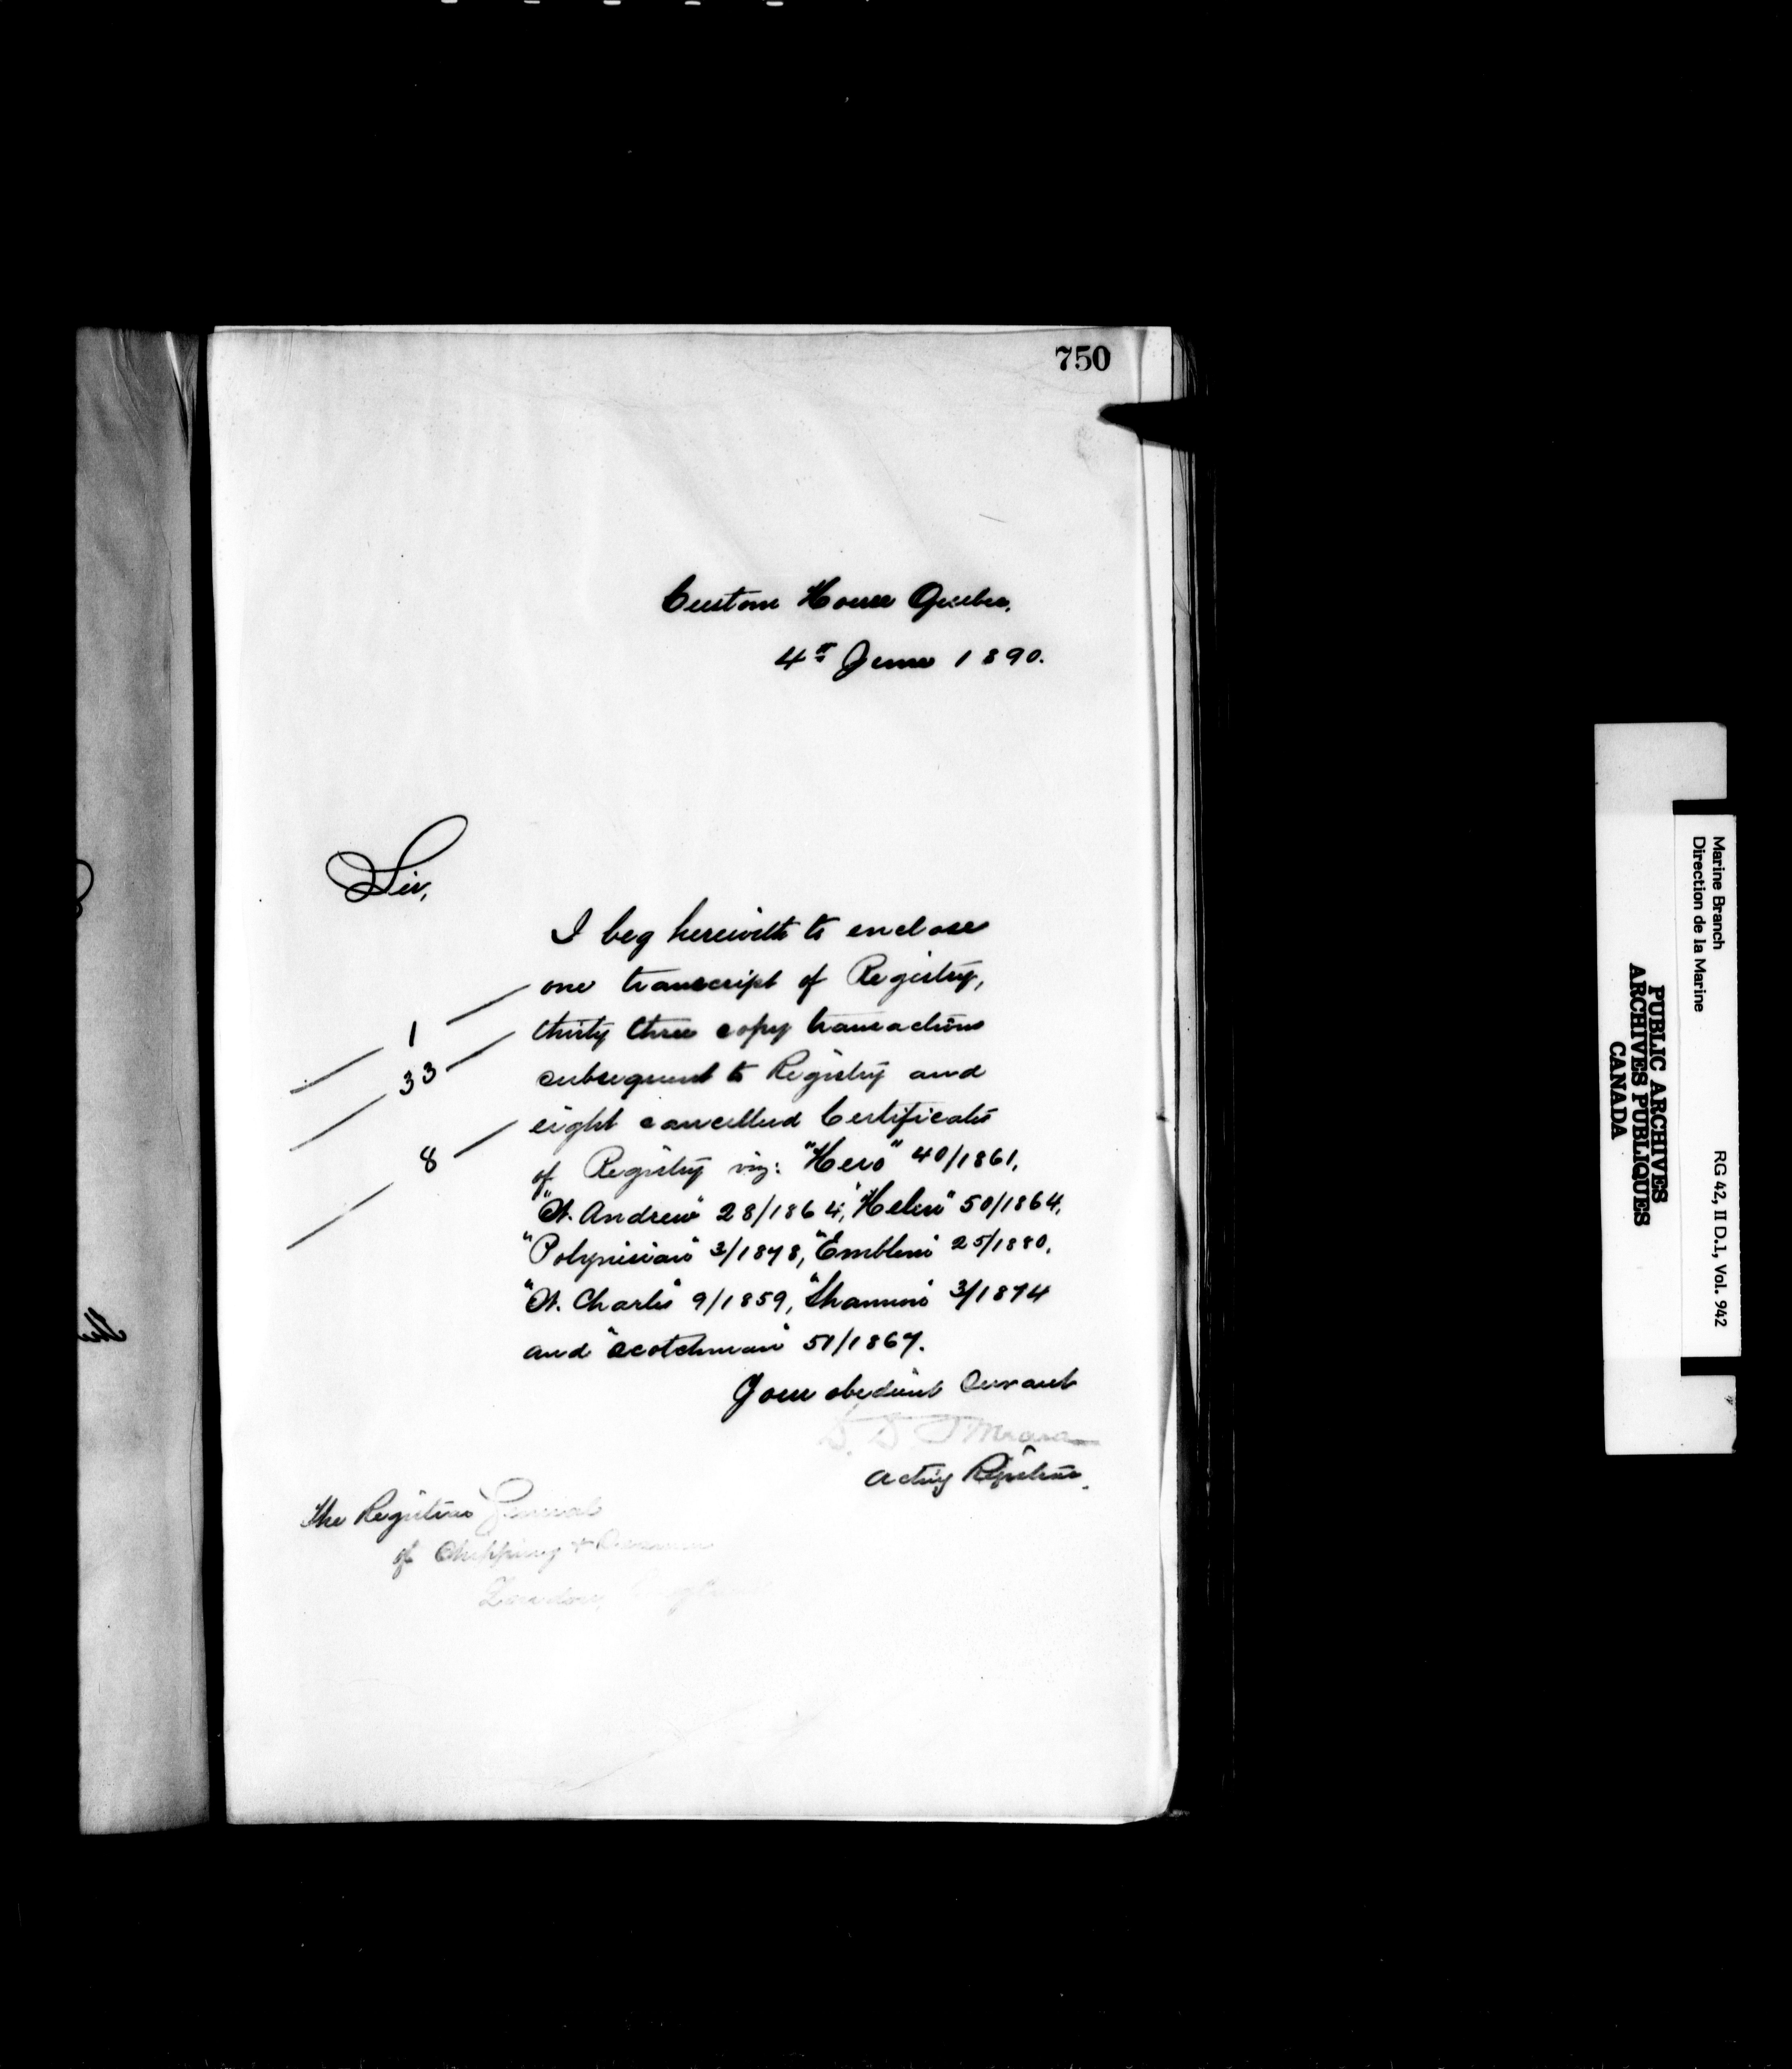 750
Custom House Quebec,
4th June 1890.
Sir,
I beg herewith to enclose
one transcript of Registry,
1
thirty three copy transactions
33
subsequent to Registry and
eight cancelled Certificates
8
of Registry viz: "Hero" 40/1861,
"St. Andrew" 28/1864, "Helen" 50/1864,
"Polynesian" 3/1878, "Emblem" 25/1880,
"St. Charles" 9/1859, "Shannon" 3/1874
and "Scotchman" 51/1867.
Your obedient Servant
Acting Registrar.
The Registrar General
of Shipping + Seamen
London, England
PUBLIC ARCHIVES
ARCHIVES PUBLIQUES
CANADA
Marine Branch
Direction de la Marine
RG 42, II D.1, Vol. 942